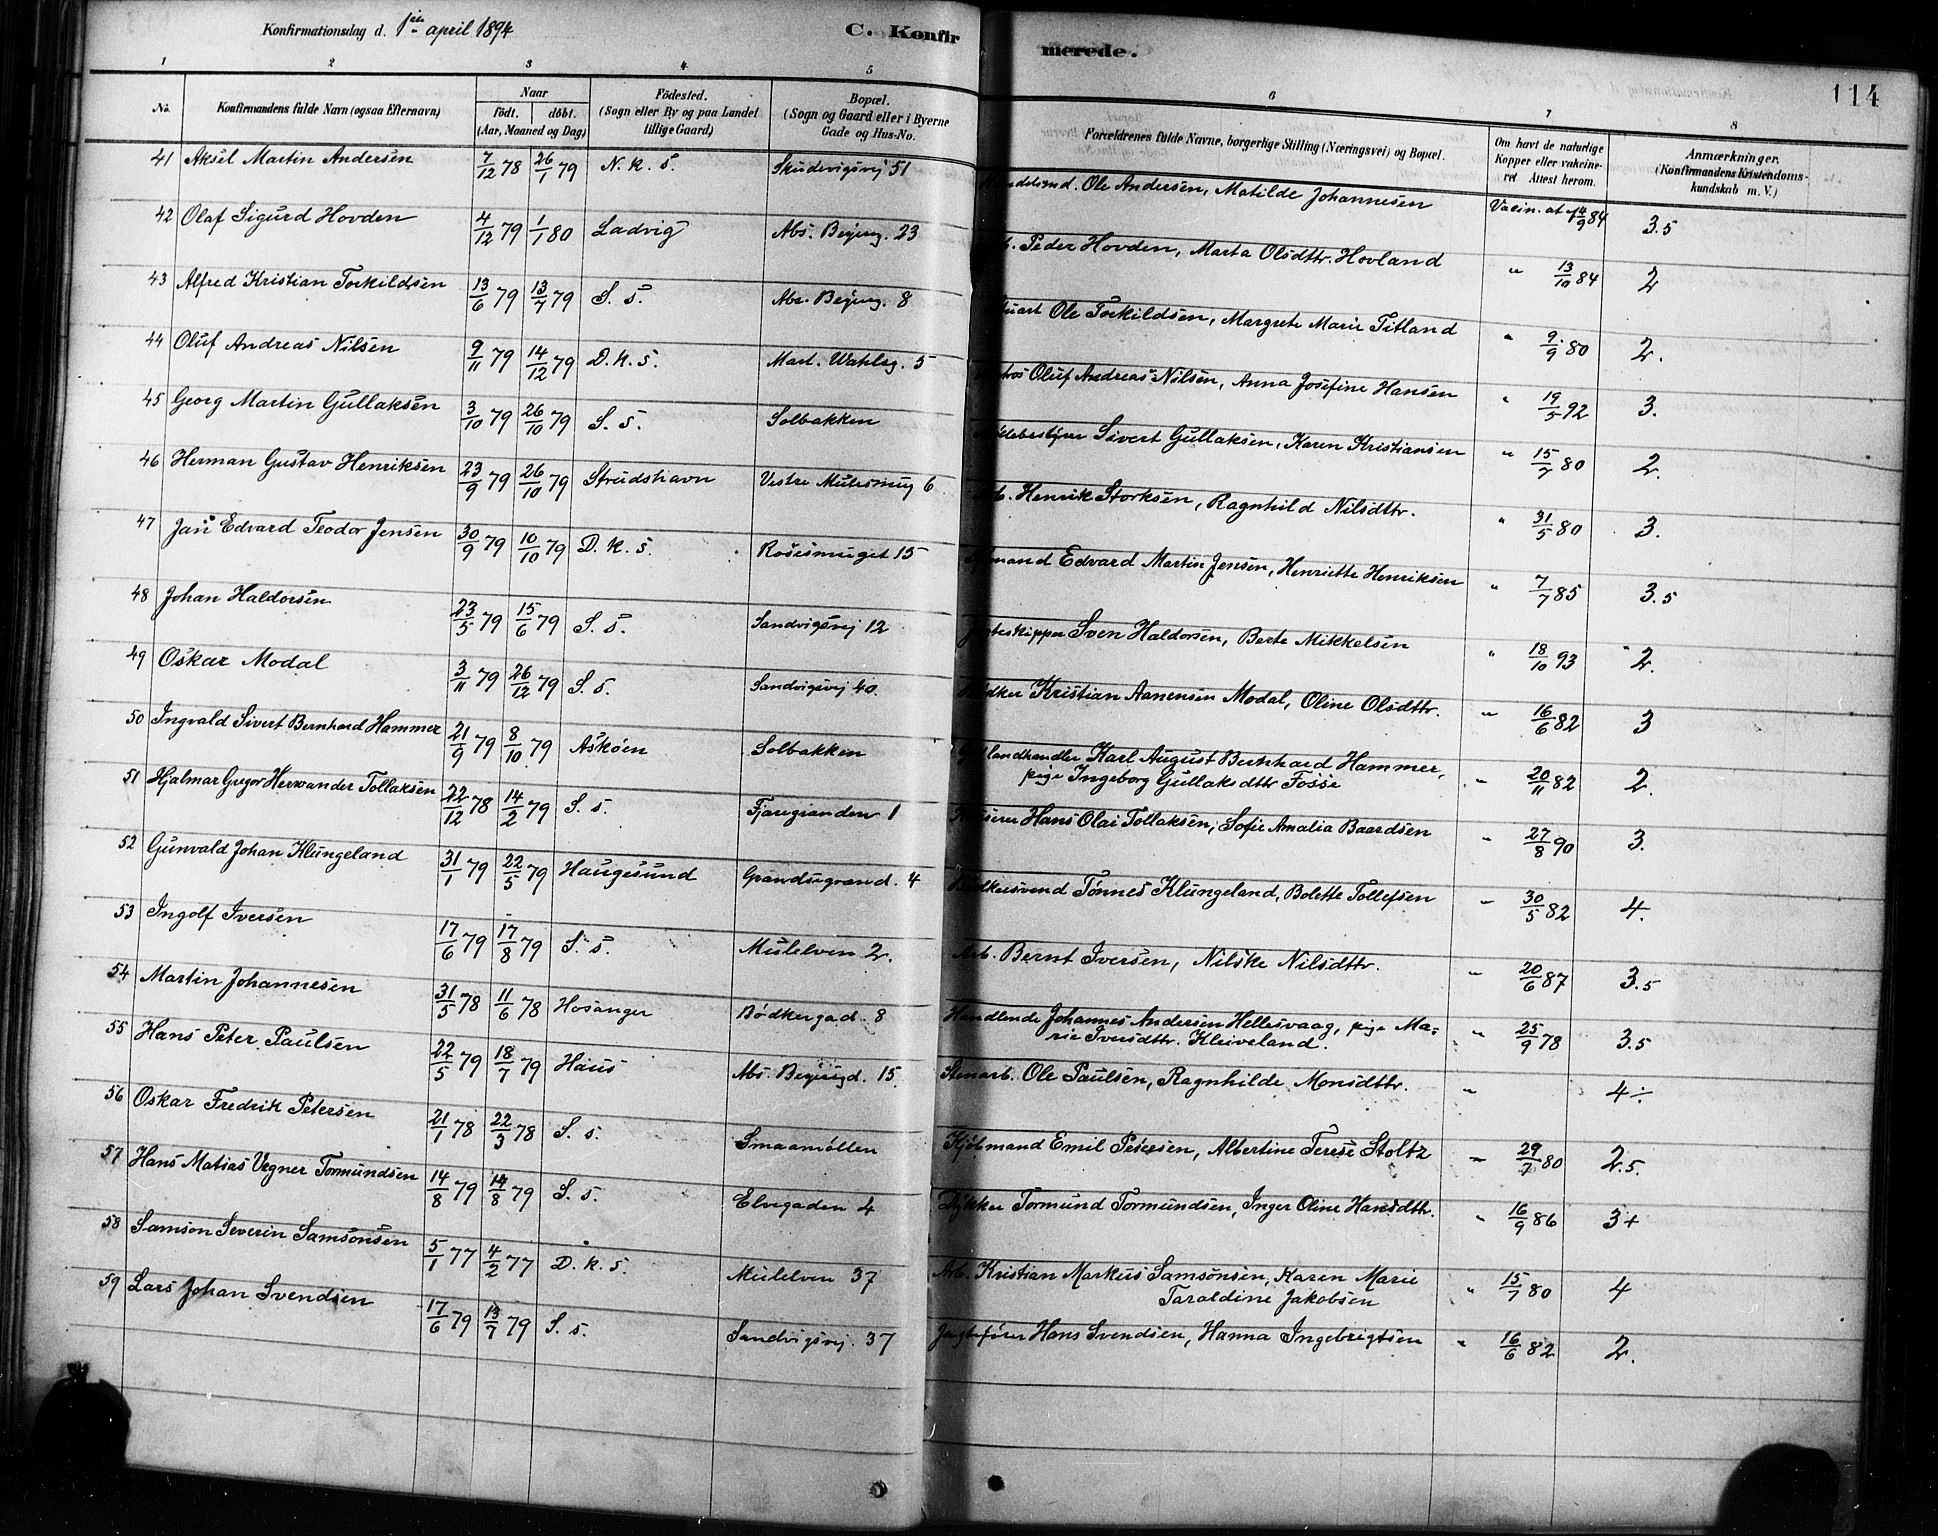 Konfirmationsdag d. 1ste april 1894
C. Konfirmerede.
114
1 2 3 4 5 6 7 8
No. Konfirmandens fulde Navn (ogsaa Efternavn) Naar født. døbt. (Aar, Maaned og Dag) Fødested. (Sogn eller By og paa Landet tillige Gaard) Bopæl. (Sogn og Gaard eller i Byerne Gade og Hus-No. Forældrenes fulde Navne, borgerlige Stilling (Næringsvei) og Bopæl. Om havt de naturlige Kopper eller vakcineret Attest herom. Anmærkninger. (Konfirmandens Kristendomskundskab m. V.)
41 Aksel Martin Andersen 7/12 78 26/1 79 N. k. s. Skudevigsvej 51 Ole Andersen, Matilde Johannesen Vaccin. at. 4/9 84 3.5
42 Olaf Sigurd Hovden 4/12 79 1/1 80 Ladvig Abs. Beyerg. 23 Peder Hovden, Marta Olsdttr. Hovland " 13/10 84 2
43 Alfred Kristian Torkildsen 13/6 79 13/7 79 S. s. Abs. Beyerg. 8 Ole Torkildsen, Margrete Marie Titland " 9/9 80 2.
44 Oluf Andreas Nilsen 9/11 79 14/12 79 D. k. s. Mart. Wahlsg. 5 Oluf Andreas Nilsen, Anna Josefine Hansen " 19/5 92 3.
45 Georg Martin Gullaksen 3/10 79 26/10 79 S. s. Solbakken Sivert Gullaksen, Karen Kristiansen " 15/7 80 2.
46 Herman Gustav Henriksen 23/9 79 26/10 79 Strudshavn Vestre Mulesmug 6 Henrik Storksen, Ragnhild Nilsdttr. " 31/5 80 3.
47 Jan Edvard Teodor Jensen 30/9 79 10/10 79 D. k. s. Rosesmuget 15 Edvard Martin Jensen, Henriette Henriksen " 7/7 85 3.5
48 Johan Haldorsen 23/5 79 15/6 79 S. s. Sandvigsvej 12 Jagteskipper Sven Haldorsen, Berte Mikkelsen " 18/10 93 2.
49 Oskar Modal 3/11 79 26/12 79 S. s. Sandvigsvej 40 Bødker Kristian Aanensen Modal, Oline Olsdttr. " 16/6 82 3
50 Ingvald Sivert Bernhard Hammer 21/9 79 8/10 79 Askøen Solbakken Karl August Bernhard Hammer,
pige Ingeborg Gullaksdttr Fosse " 20/11 82 2.
51 Hjalmar Gregor Herwander Tollaksen 22/12 78 14/2 79 S. s. Fjæregranden 1 Hans Olai Tollaksen, Sofie Amalia Baardsen " 27/8 90 3.
52 Gunvald Johan Klungeland 31/1 79 22/5 79 Haugesund 4 Bødkersvend Tønnes Klungeland, Bolette Tollefsen " 30/5 82 4.
53 Ingolf Iversen 17/6 79 17/8 79 S. s. Mulelven 2. Arb. Bernt Iversen, Nilske Nilsdttr. " 20/6 87 3.5
54 Martin Johannesen 31/5 78 11/6 78 Hosanger Bødkergad. 8 Handlende Johannes Andersen Hellesvaag, pige Ma=
rie Iversdttr. Kleiveland. " 25/9 78 3.5
55 Hans Peter Paulsen 22/5 79 18/7 79 Haus Abs. Beyergd. 15. Stenarb. Ole Paulsen, Ragnhilde Monsdttr. " 4÷
56 Oskar Fredrik Petersen 21/1 78 22/3 78 S. s. Smaamøllen Kjøbmand Emil Petersen, Albertine Terese Stoltz " 29/7 80 2.5.
57 Hans Matias Vegner Tormundsen 14/8 79 14/8 79 S. s. Elvegaden 4 Dykker Tormund Tormundsen, Inger Oline Hansdttr. " 16/9 86 3+
58 Samson Severin Samsonsen 5/1 77 4/2 77 D. k. s. Mulelven 37 Arb. Kristian Markus Samsonsen, Karen Marie
Taraldine Jakobsen " 15/7 80 4
59 Lars Johan Svendsen 17/6 79 13/7 79 S. s. Sandvigsvej. 37 Jagtefører Hans Svendsen, Hanna Ingebrigtsen " 16/6 82 2.